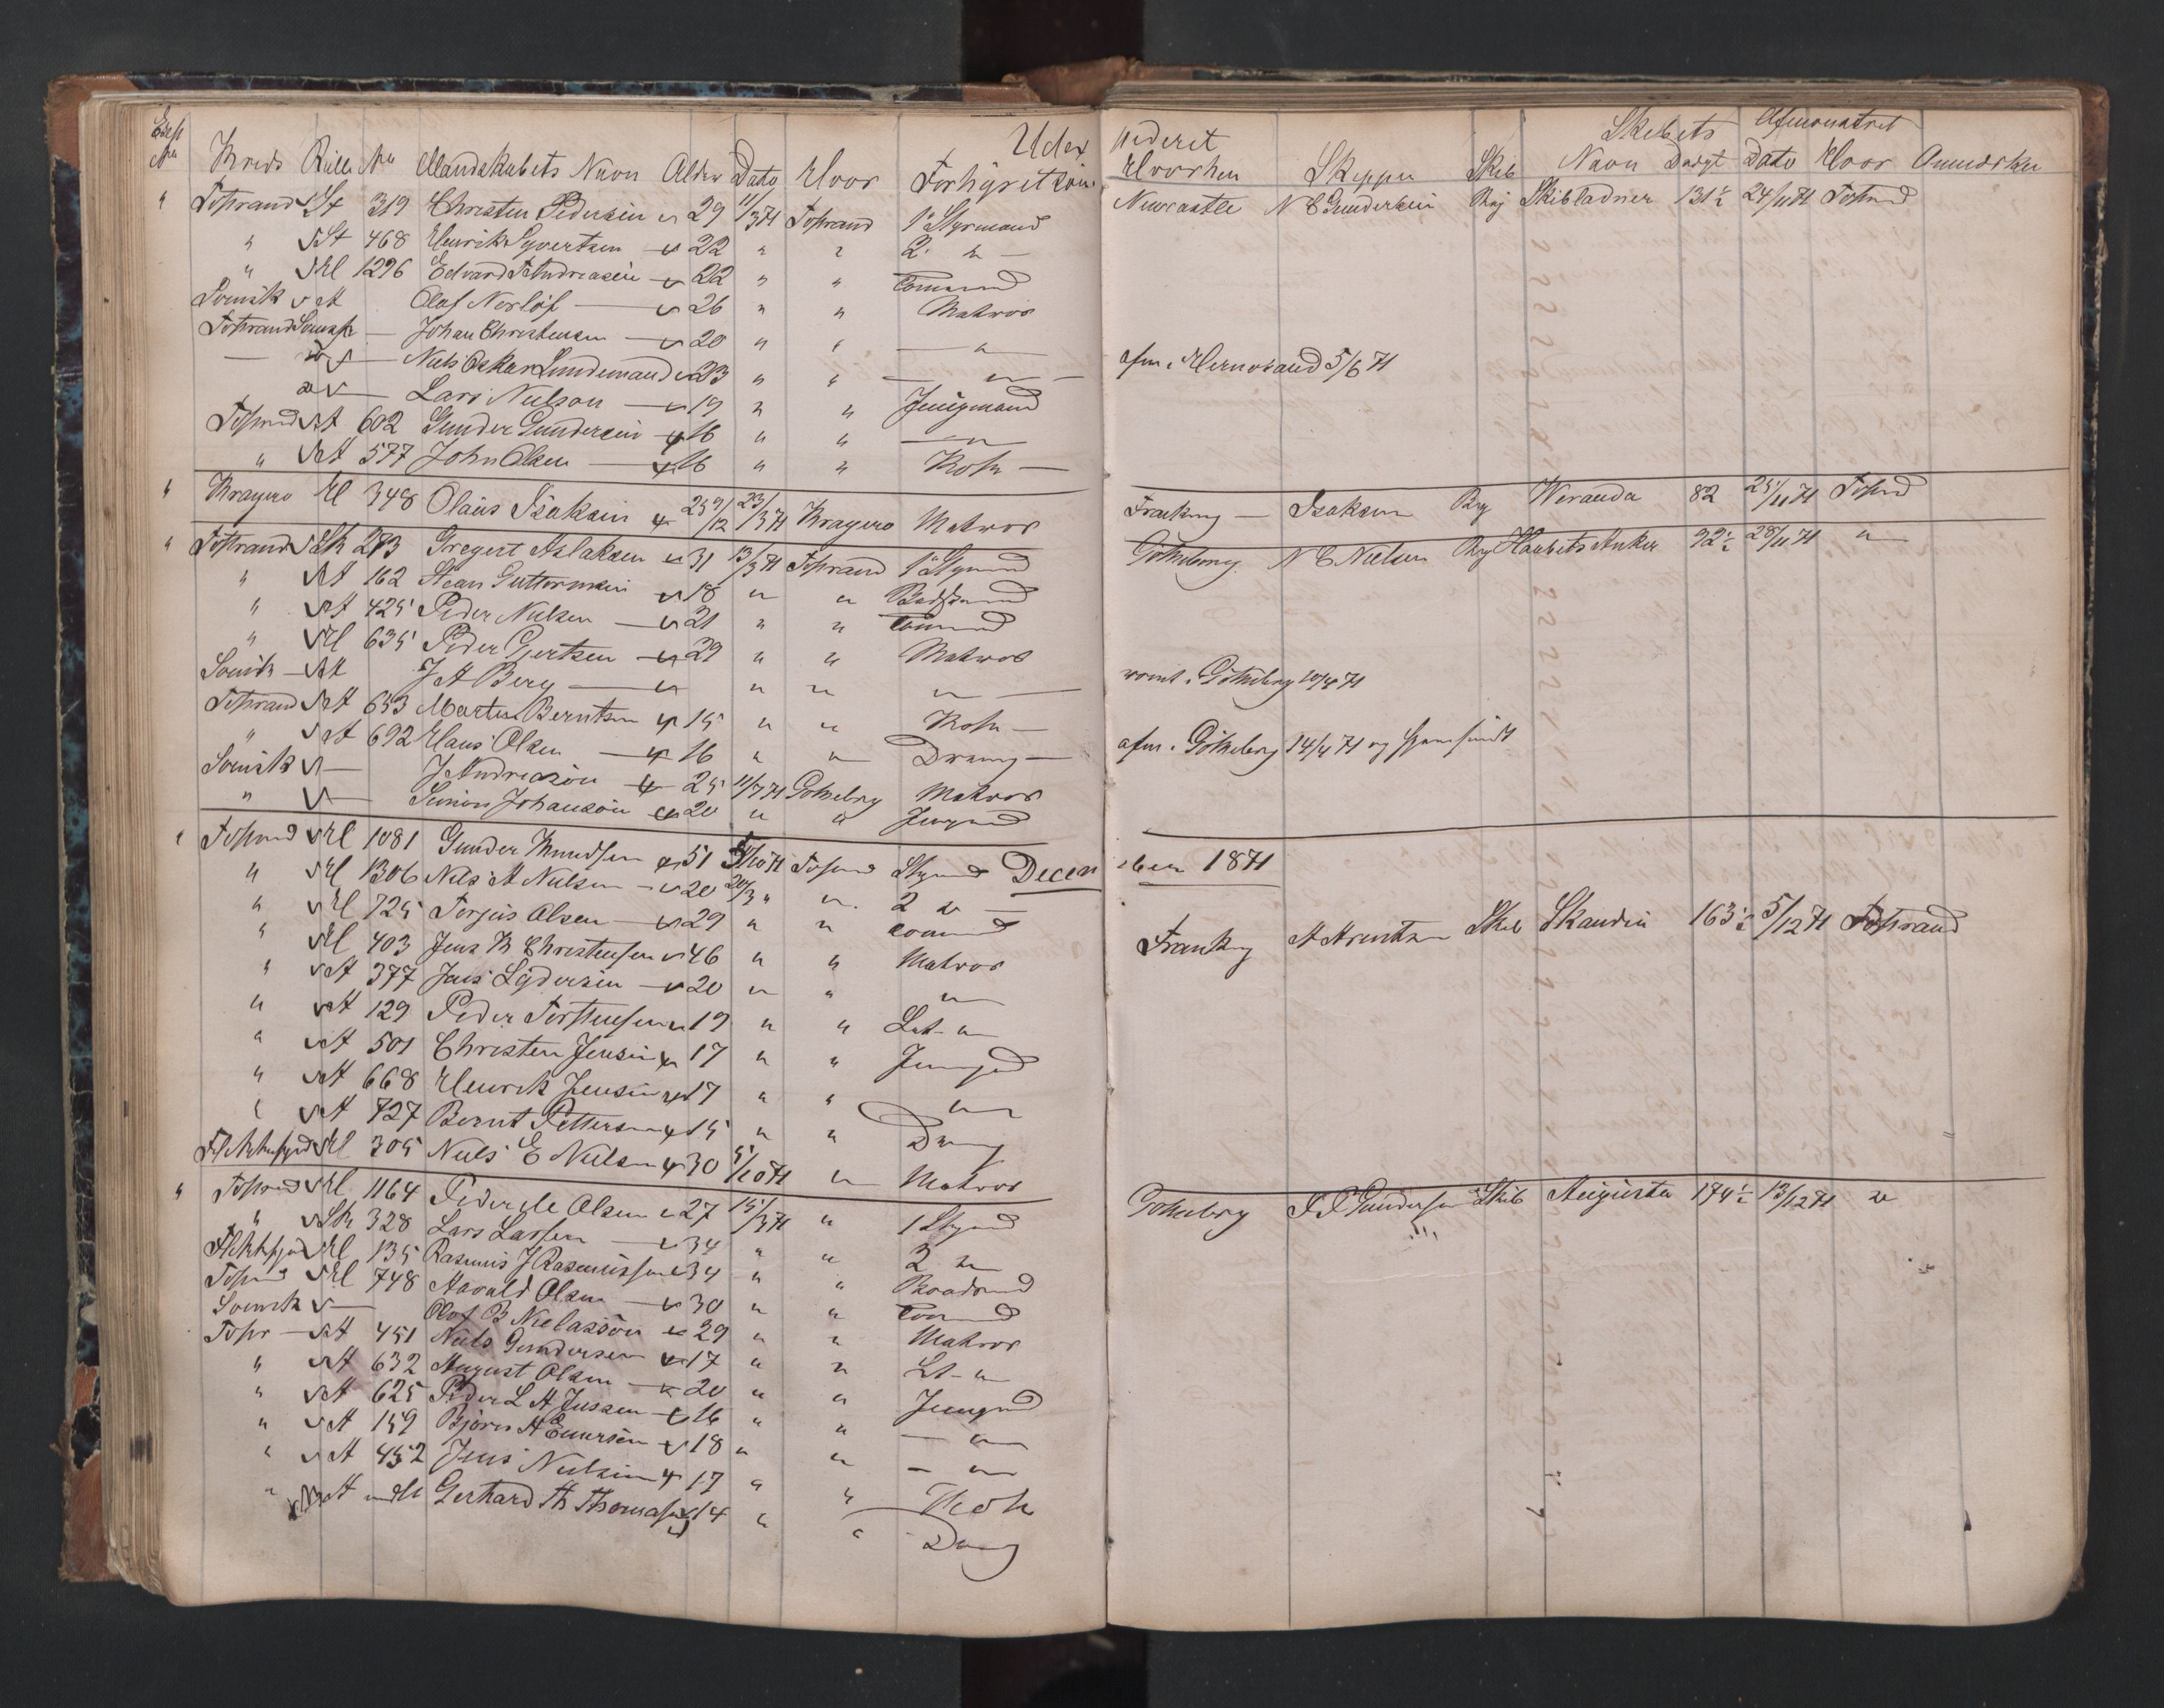 Udmønstret
Kreds Rulle No Mandskabets Navn Alder Dato Hvor Forhyret som Hvorhen Skipper Skib Skibets Navn Drægt Dato Hvor Anmærkn
Afmønstret
" Tvstrand St 319 Christen Pedersen 29 11/3 71 Tvstrand 1ste Styrmand Newcastle N C Gundersen Brig Skibladner 131½ 24/11 71 Tvstrand
" St 468 Henrik Syvertsen 22 " " 2. "
" Hl 1296 Edvard Andreasen 22 " " Tømmd
Svensk A Olof Norlöf 26 " " Matros
Tvstrand Svensk Johan Christensen 20 " " "
Niels Oskar Lundemand 23 " " " afm. Hernosand 5/6 71
Lars Nielson 19 " " Jungmand
Tvstrand A 602 Gunder Gundersen 16 " " "
" A 577 John Olsen 16 " " Kok
" Kragerø Hl 348 Olaus Isaksen 25 9/12 23/3 71 Kragerø Matros Frankrig Isaksen Brig Weranda 82 25/11 71 Tvstrand
" Tvstrand Sk 273 Gregert Aslaksen 31 13/3 71 Tvstrand 1ste Styrmd Gøtheborg N C Nielsen Brg Haabets Anker 92½ 28/11 71 "
" A 162 Stean Guttormsen 18 " " Bødtkermd
" A 425 Peder Nielsen 21 " " Tømmd
" Hl 635 Peder Gjertsen 29 " " Matros
Svensk A J A Berg " " " rømt. Gøtheborg 10/4 71
Tvstrand A 653 Martin Berntsen 15 " " Kok
" A 692 Hans Olsen 16 " " Dreng afm. Gøtheborg 14/4 71 og hjemsendt
Svensk J Andreasön 25 11/7 71 Gøtheborg Matros
" Simon Johansön 20 " " Jungmd
December 1871
" Tvstrand Hl 1081 Gunder Knudsen 51 /10 71 Tvstrand Styrmd
" Hl 1306 Nils A Nielsen 20 20/3 " " 2 "
" Hl 725 Torjus Olsen 29 " " Tømmd Frankrig A Arentzen Skib Skandia 163½ 5/12 71 Tvstrand
" Hl 403 Jens K Christensen 46 " " Matros
" A 377 Jens Lydersen 20 " " "
" A 129 Peder Torstensen 19 " " Let- "
" A 501 Christen Jensen 17 " " Jungmd
" A 668 Henrik Jensen 17 " " "
" A 727 Bernt Pettersen 15 " " Dreng
Flekkefjord Hl 305 Niels E Nielsen 30 5/10 71 " Matros
" Tvstrand Hl 1164 Peder M Olsen 27 15/3 71 " 1 Styrmd Gøtheborg J P Gundersen Skib Augusta 174½ 13/12 71 "
" Sk 328 Lars Larsen 34 " " 2 "
Flekkefjord Hl 135 Rasmus J Rasmussen 34 " " Baadsmd
Tvstrand Hl 748 Harald Olsen 30 " " Tømmd
Svensk Olof B Nielassön 29 " " Matros
Tvstr A 451 Niels Gundersen 17 " " Lt- "
" A 632 August Olsen 20 " " Jungmd
" A 625 Peder L A Jussen 16 " " "
" A 159 Bjørn H Einersen 18 " " "
" A 452 Jens Nielsen 17 " " Kok
" A Gerhard Th Thomassen 14 " " Dreng